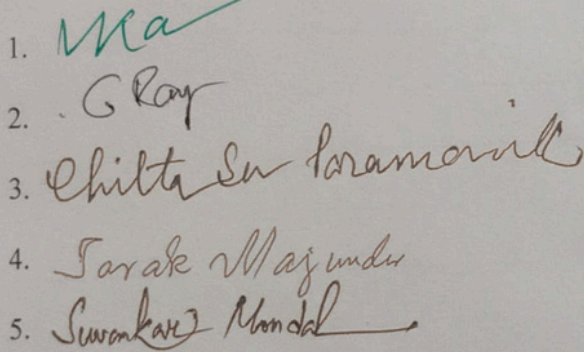 1.
2. G Ray
3. Chitta Sen Paramanik
4. Tarak Majumder
5. Suvankar Mondal